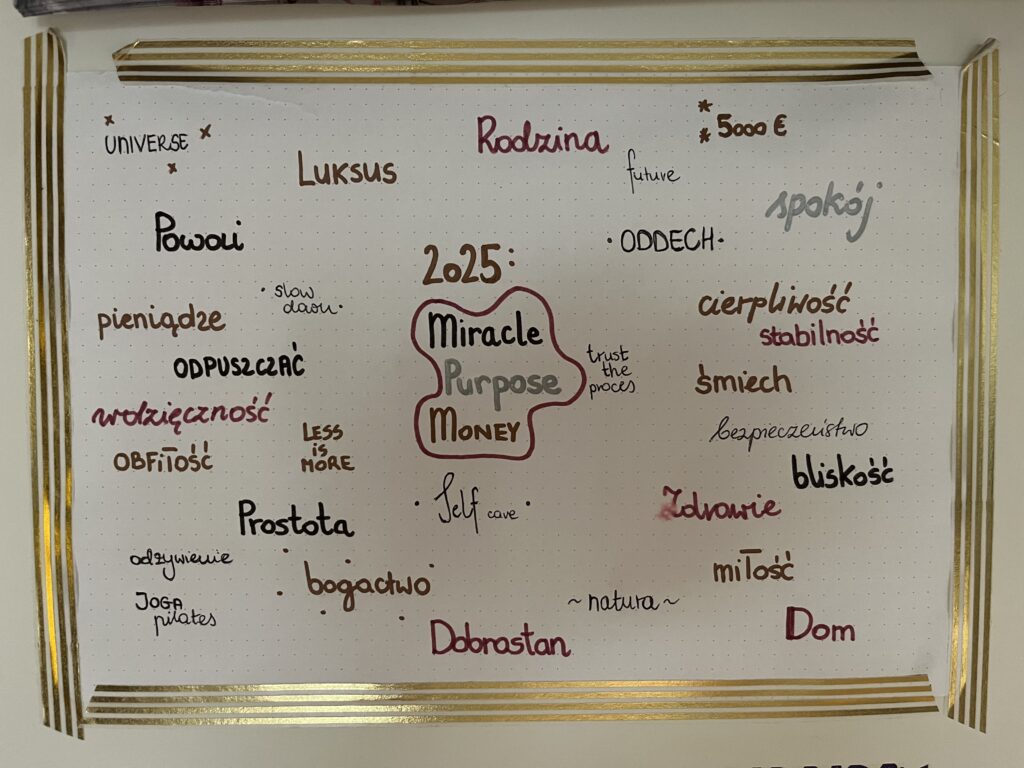 UNIVERSE
Luksus
Rodzina
5000 €
future
spokój
Powoli
ODDECH
2025:
slow
down
pieniądze
cierpliwość
stabilność
Miracle
Purpose
Money
trust
the
proces
ODPUSZCZAĆ
śmiech
wdzięczność
OBFITOŚĆ
LESS
iS
MORE
bezpieczeństwo
bliskość
Self care
Zdrowie
Prostota
odżywienie
bogactwo
miłość
JOGA
pilates
~ natura ~
Dobrostan
Dom